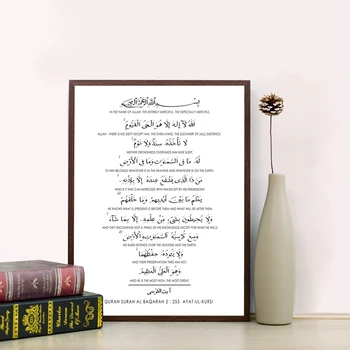 بِسْمِ اللهِ الرَّحْمٰنِ الرَّحِيْمِ
IN THE NAME OF ALLAH, THE ENTIRELY MERCIFUL, THE ESPECIALLY MERCIFUL.
اَللهُ لَآ اِلٰهَ اِلَّا هُوَ الْحَيُّ الْقَيُّوْمُ
ALLAH - THERE IS NO DEITY EXCEPT HIM, THE EVER-LIVING, THE SUSTAINER OF [ALL] EXISTENCE.
لَا تَأْخُذُهٗ سِنَةٌ وَّلَا نَوْمٌ
NEITHER DROWSINESS OVERTAKES HIM NOR SLEEP.
لَهٗ مَا فِي السَّمٰوٰتِ وَمَا فِي الْاَرْضِ
TO HIM BELONGS WHATEVER IS IN THE HEAVENS AND WHATEVER IS ON THE EARTH.
مَنْ ذَا الَّذِيْ يَشْفَعُ عِنْدَهٗٓ اِلَّا بِاِذْنِهٖ
WHO IS IT THAT CAN INTERCEDE WITH HIM EXCEPT BY HIS PERMISSION?
يَعْلَمُ مَا بَيْنَ اَيْدِيْهِمْ وَمَا خَلْفَهُمْ
HE KNOWS WHAT IS [PRESENTLY] BEFORE THEM AND WHAT WILL BE AFTER THEM,
وَلَا يُحِيْطُوْنَ بِشَيْءٍ مِّنْ عِلْمِهٖٓ اِلَّا بِمَا شَآءَ
AND THEY ENCOMPASS NOT A THING OF HIS KNOWLEDGE EXCEPT FOR WHAT HE WILLS.
وَسِعَ كُرْسِيُّهُ السَّمٰوٰتِ وَالْاَرْضَ
HIS KURSI EXTENDS OVER THE HEAVENS AND THE EARTH,
وَلَا يَئُوْدُهٗ حِفْظُهُمَا
AND THEIR PRESERVATION TIRES HIM NOT.
وَهُوَ الْعَلِيُّ الْعَظِيْمُ
AND HE IS THE MOST HIGH, THE MOST GREAT.
آية الكرسي
QURAN SURAH AL BAQARAH 2 : 255 AYAT-UL-KURSI